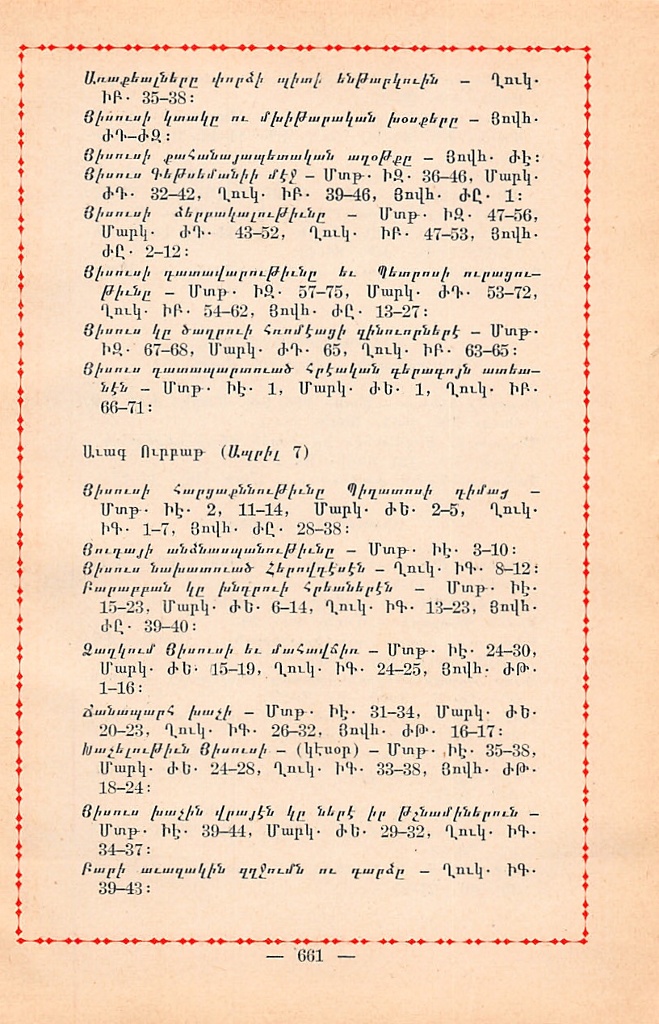 Առաքեալները փորձի պիտի ենթարկուին – Ղուկ․
ԻԲ․ 35–38։
Յիսուսի կտակը ու մխիթարական խօսքերը – Յովհ․
ԺԴ–ԺԶ։
Յիսուսի քահանայապետական աղօթքը – Յովհ․ ԺԷ։
Յիսուս Գեթսեմանիի մէջ – Մտթ․ ԻԶ․ 36–46, Մարկ․
ԺԴ․ 32–42, Ղուկ․ ԻԲ․ 39–46, Յովհ․ ԺԸ․ 1։
Յիսուսի ձերբակալութիւնը – Մտթ․ ԻԶ․ 47–56,
Մարկ․ ԺԴ․ 43–52, Ղուկ․ ԻԲ․ 47–53, Յովհ․
ԺԸ․ 2–12։
Յիսուսի դատավարութիւնը եւ Պետրոսի ուրացու–
թիւնը – Մտթ․ ԻԶ․ 57–75, Մարկ․ ԺԴ․ 53–72,
Ղուկ․ ԻԲ․ 54–62, Յովհ․ ԺԸ․ 13–27։
Յիսուս կը ծաղրուի Հռոմէացի զինուորներէ – Մտթ․
ԻԶ․ 67–68, Մարկ․ ԺԴ․ 65, Ղուկ․ ԻԲ․ 63–65։
Յիսուս դատապարտուած Հրէական գերագոյն ատեա–
նէն – Մտթ․ ԻԷ․ 1, Մարկ․ ԺԵ․ 1, Ղուկ․ ԻԲ․
66–71։
Աւագ Ուրբաթ (Ապրիլ 7)
Յիսուսի Հարցաքննութիւնը Պիղատոսի դիմաց –
Մտթ․ ԻԷ․ 2, 11–14, Մարկ․ ԺԵ․ 2–5, Ղուկ․
ԻԳ․ 1–7, Յովհ․ ԺԸ․ 28–38։
Յուդայի անձնասպանութիւնը – Մտթ․ ԻԷ․ 3–10։
Յիսուս նախատուած Հերովդէսէն – Ղուկ․ ԻԳ․ 8–12։
Բարաբբան կը խնդրուի Հրեաներէն – Մտթ․ ԻԷ․
15–23, Մարկ․ ԺԵ․ 6–14, Ղուկ․ ԻԳ․ 13–23, Յովհ․
ԺԸ․ 39–40։
Ձաղկում Յիսուսի եւ մահավճիռ – Մտթ․ ԻԷ․ 24–30,
Մարկ․ ԺԵ․ 15–19, Ղուկ․ ԻԳ․ 24–25, Յովհ․ ԺԹ․
1–16։
Ճանապարհ խաչի – Մտթ․ ԻԷ․ 31–34, Մարկ․ ԺԵ․
20–23, Ղուկ․ ԻԳ․ 26–32, Յովհ․ ԺԹ․ 16–17։
Խաչելութիւն Յիսուսի – (կէսօր) – Մտթ․ ԻԷ․ 35–38,
Մարկ․ ԺԵ․ 24–28, Ղուկ․ ԻԳ․ 33–38, Յովհ․ ԺԹ․
18–24։
Յիսուս խաչին վրայէն կը ներէ իր թշնամիներուն –
Մտթ․ ԻԷ․ 39–44, Մարկ․ ԺԵ․ 29–32, Ղուկ․ ԻԳ․
34–37։
Բարի աւազակին զղջումն ու դարձը – Ղուկ․ ԻԳ․
39–43։
— 661 —